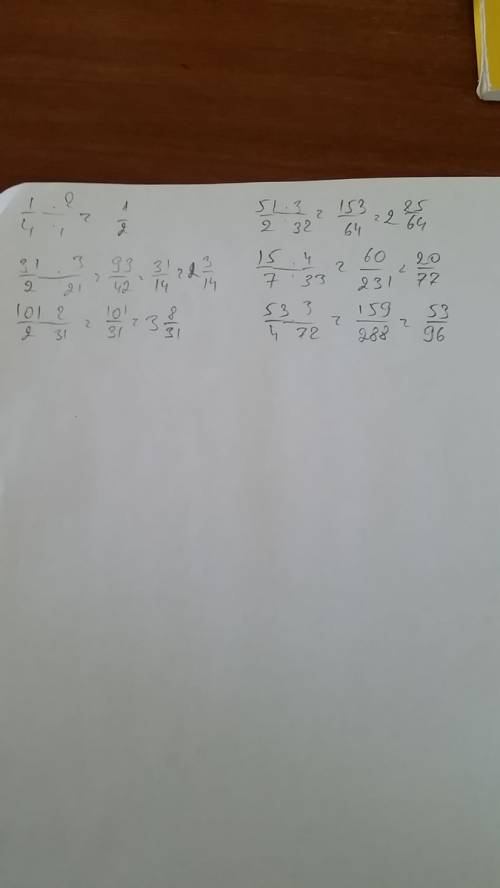 1/4 · 2/1 = 1/2
31/2 · 3/21 = 93/42 = 31/14 = 2 3/14
101/2 · 2/31 = 101/31 = 3 8/31
51/2 · 3/32 = 153/64 = 2 25/64
15/7 · 4/33 = 60/231 = 20/77
53/4 · 3/72 = 159/288 = 53/96